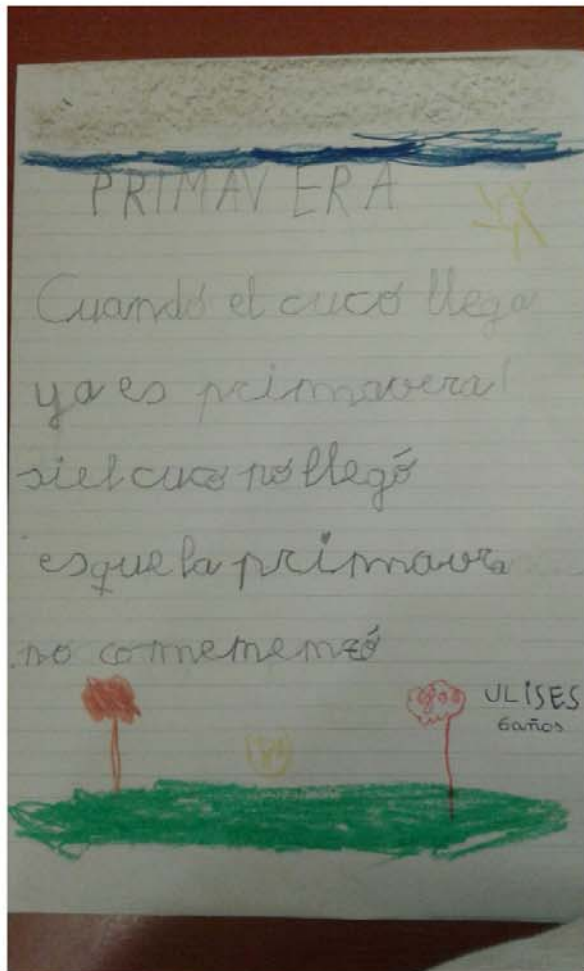 PRIMAVERA
Cuandó el cucó llega
ya es primavera!
si el cuco nó llegó
es que la primavra
no comemenzó
ULISES
6 años